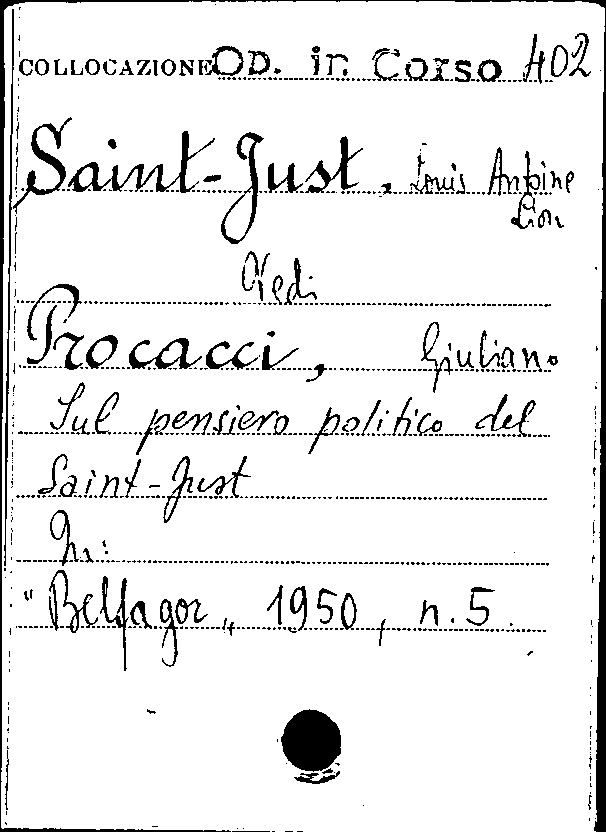 COLLOCAZIONE OD. in Corso 402
Saint-Just, Louis Antoine
Léon
Vedi
Procacci, Giuliano
Sul pensiero politico del
Saint-Just
In:
"Belfagor„ 1950, n. 5.